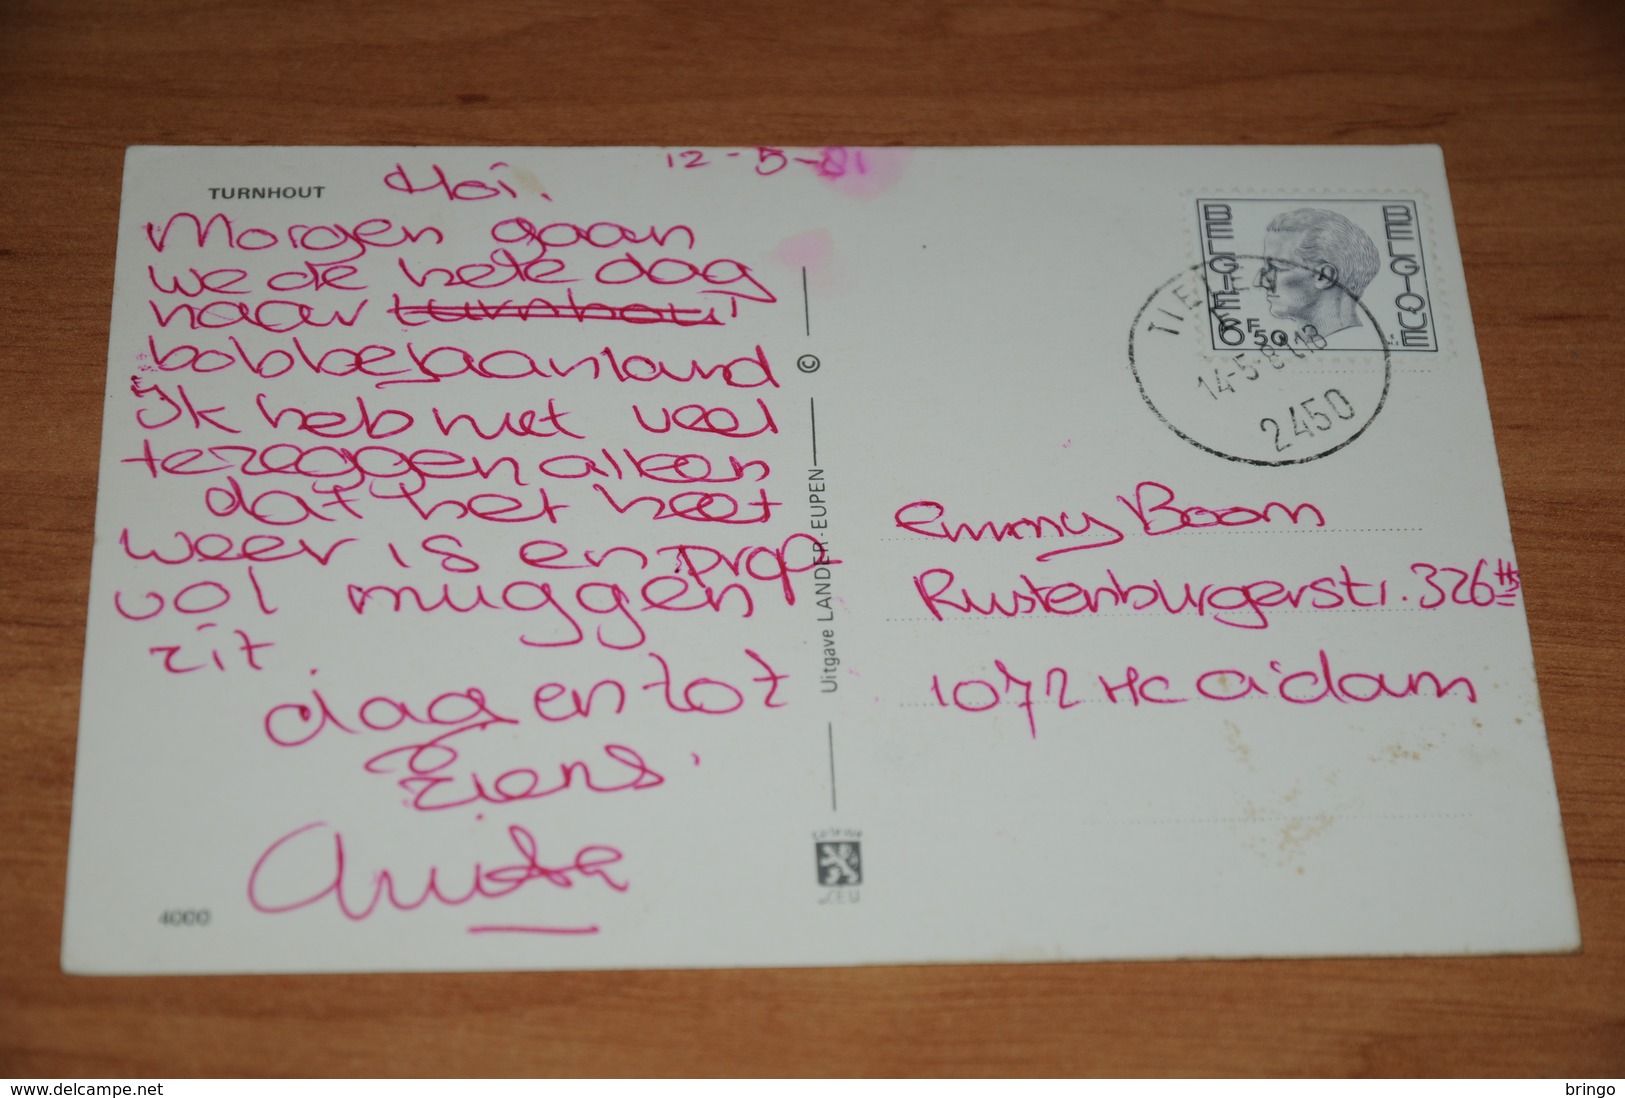 TURNHOUT
12-5-81
Hoi.
Morgen gaan
we de hele dag
naar turnhout
bobbejaanland
Ik heb niet veel
te zeggen alleen
dat het heet
weer is en prop
vol muggen
zit.
dag en tot
Ziens.
4000
Uitgave LANDER-EUPEN ©
BELGIË BELGIQUE
6F50
14-5-81 18
2450
Emmy Boom
Rustenburgerstr. 326 hs
1072 HC a'dam
delcampe.net
bringo